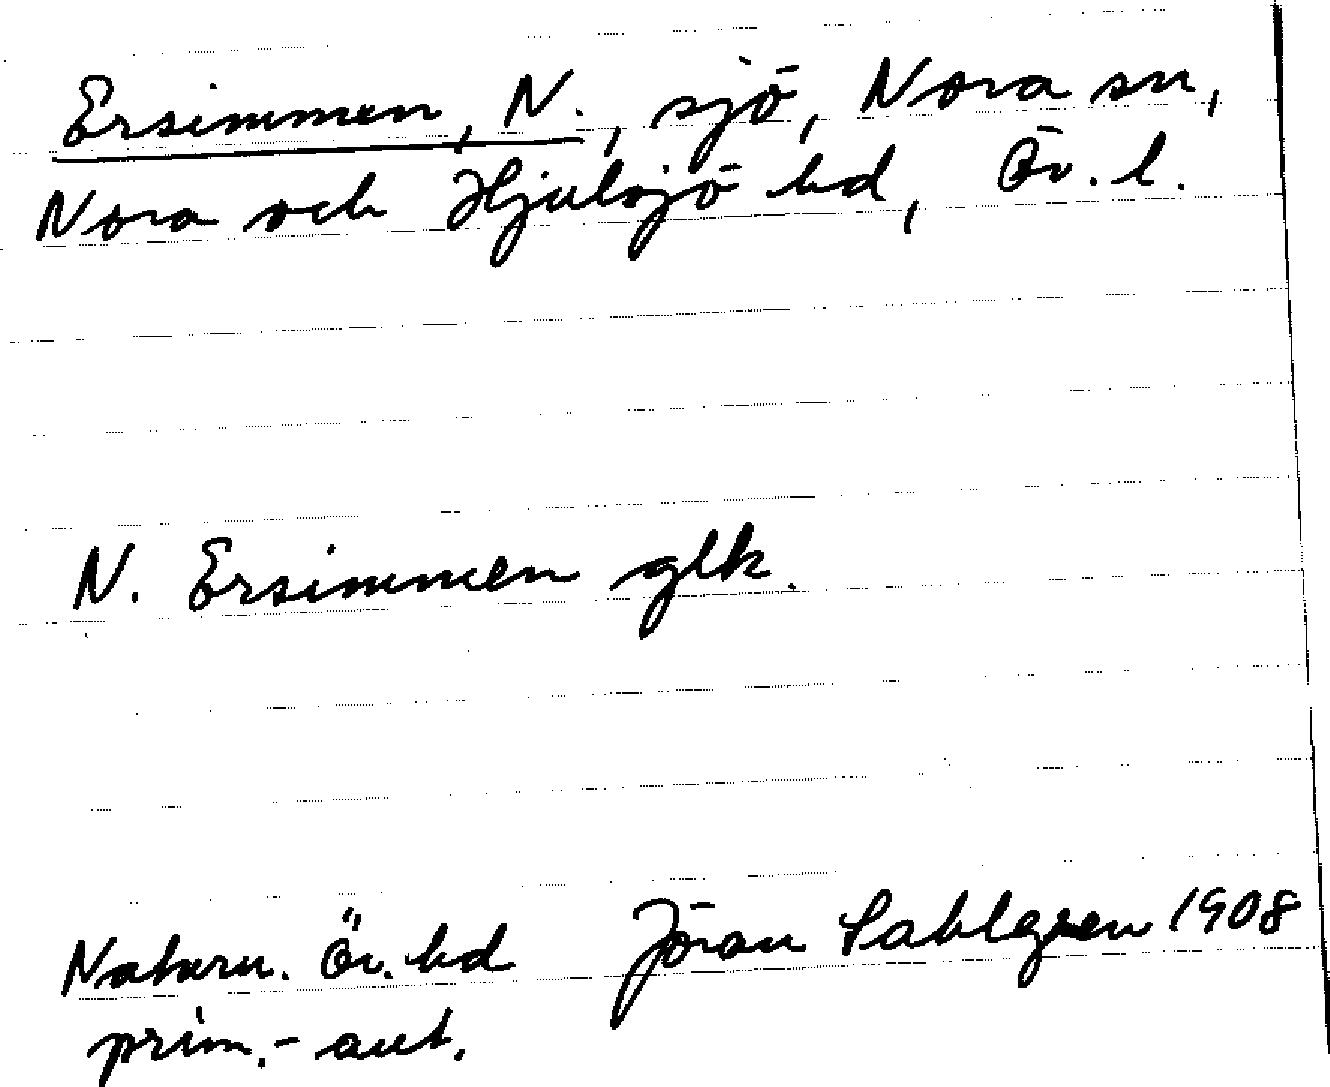 Ersimmen, N., sjö, Nora sn,
Nora och Hjulsjö bd, Ör. l.
N. Ersimmen glk.
Naturn. Ör. bd Jöran Sahlgren 1908
prim.- aut.